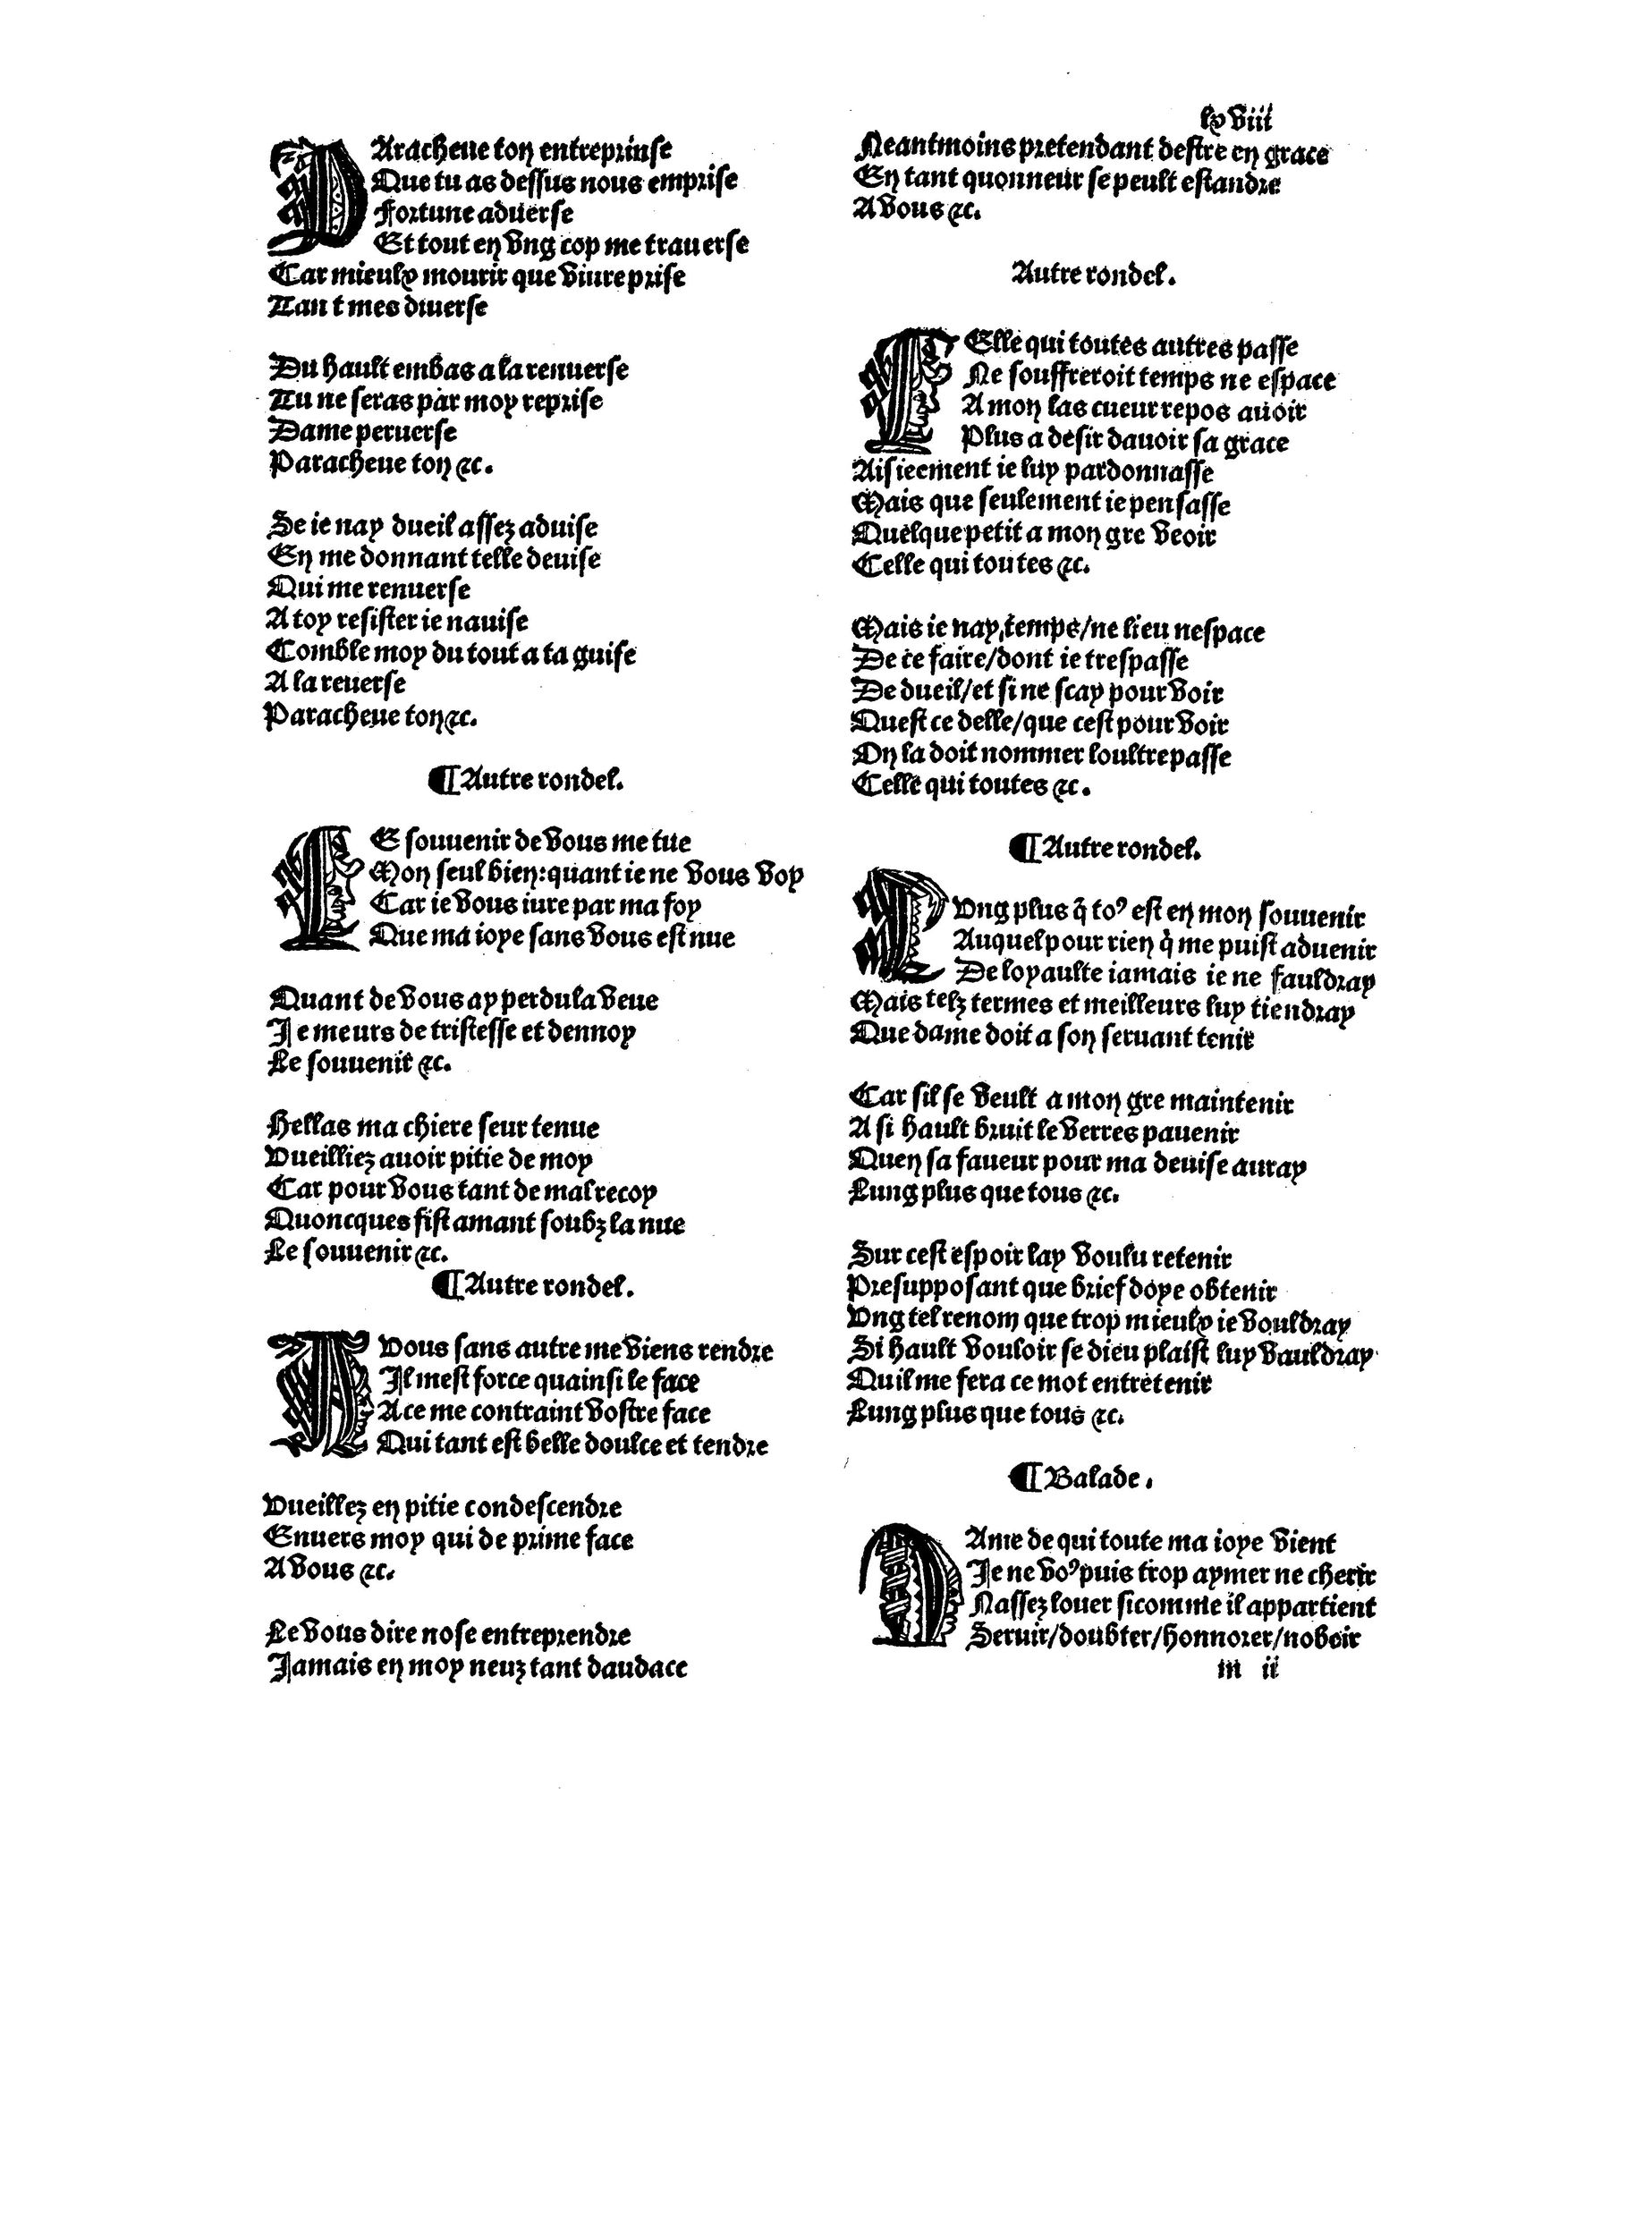 PAracheue ton entreprinse
Que tu as dessus nous emprise
Fortune aduerse
Et tout en vng cop me trauerse
Car mieulx mourir que viure prise
Tant mes diuerse

Du hault embas a la renuerse
Tu ne seras par moy reprise
Dame peruerse
Paracheue ton &c.

Se ie nay dueil assez aduise
En me donnant telle deuise
Qui me renuerse
A toy resister ie nauise
Comble moy du tout a ta guise
A la reuerse
Paracheue ton &c.

¶ Autre rondel.

LE souuenir de vous me tue
Mon seul bien: quant ie ne vous voy
Car ie vous iure par ma foy
Que ma ioye sans vous est nue

Quant de vous ay perdu la veue
Je meurs de tristesse et dennoy
Le souuenir &c.

Hellas ma chiere seur tenue
Vueilliez auoir pitie de moy
Car pour vous tant de mal recoy
Quoncques fist amant soubz la nue
Le souuenir &c.
¶ Autre rondel.

A Vous sans autre me viens rendre
Il mest force quainsi le face
A ce me contraint vostre face
Qui tant est belle doulce et tendre

Vueillez en pitie condescendre
Enuers moy qui de prime face
A vous &c.

Le vous dire nose entreprendre
Jamais en moy neuz tant daudace

lxviii
Neantmoins pretendant destre en grace
En tant quonneur se peult estandre
A vous &c.

Autre rondel.

CElle qui toutes autres passe
Ne souffreroit temps ne espace
A mon las cueur repos auoir
Plus a desir dauoir sa grace
Aisieement ie luy pardonnasse
Mais que seulement ie pensasse
Quelque petit a mon gre veoir
Celle qui toutes &c.

Mais ie nay temps/ne lieu nespace
De ce faire/dont ie trespasse
De dueil/et si ne scay pour voir
Quest ce delle/que cest pour voir
On la doit nommer loultrepasse
Celle qui toutes &c.

¶ Autre rondel.

LVng plus q̃ to⁹ est en mon souuenir
Auquel pour rien q̃ me puist aduenir
De loyaulte iamais ie ne fauldray
Mais telz termes et meilleurs luy tiendray
Que dame doit a son seruant tenir

Car sil se veult a mon gre maintenir
A si hault bruit le verres pauenir
Quen sa faueur pour ma deuise auray
Lung plus que tous &c.

Sur cest espoir lay voulu retenir
Presupposant que brief doye obtenir
Vng tel renom que trop mieulx ie vouldray
Si hault vouloir se dieu plaist luy vauldray
Quil me fera ce mot entretenir
Lung plus que tous &c.

¶ Balade.

DAme de qui toute ma ioye vient
Je ne vo⁹ puis trop aymer ne cherir
Nassez louer sicomme il appartient
Seruir/doubter/honnorer/noboir
m ii